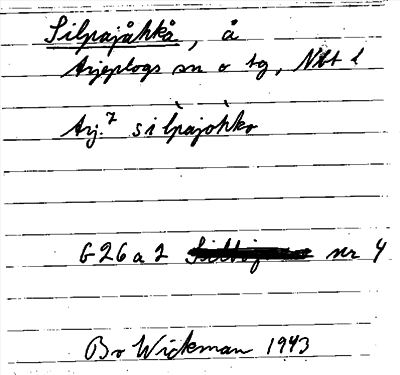 Silpajåhkå, å
Arjeplogs sn o tg, Nbt l
Arj.7 sìlpajòhko
G 26 a 2 nr 4
Bo Wickman 1943